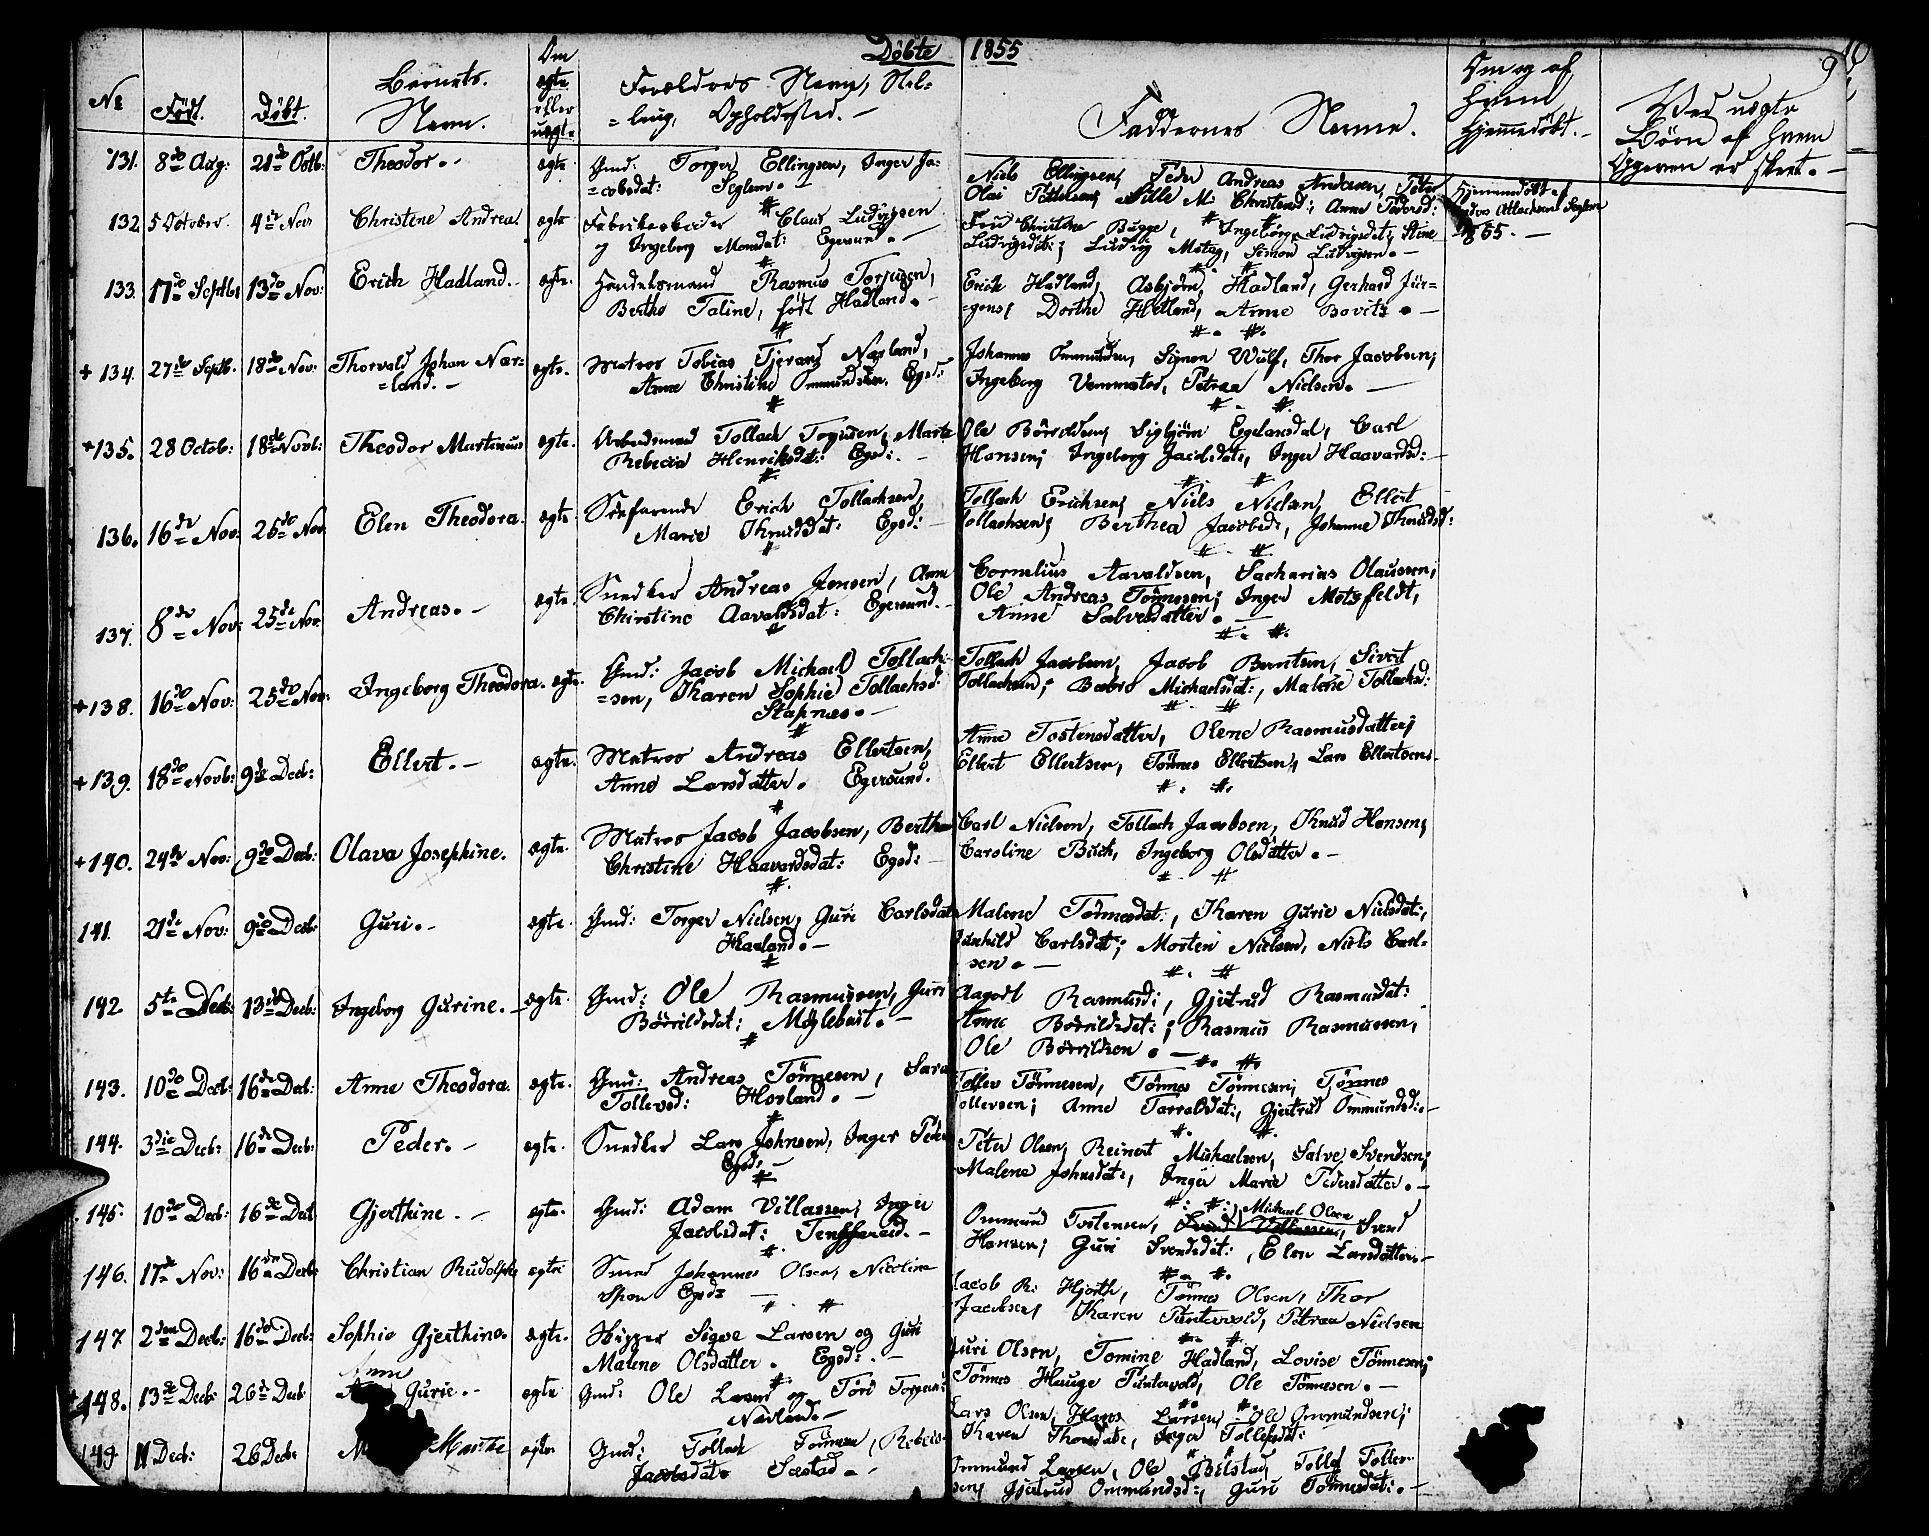 Döbte 1855
9
No Födt. Döbt. Barnets Navn. Om ægte eller uægte Forældres Navn, Stilling, Opholdssted. — Faddernes Navne. Om og af hvem hjemmedöbt. — Ved uægte Börn af hvem Opgaven er skeet. —
131. 8de Aug: 21de Octb: Theodor. — ægte Gmd: Torger Ellingsen, Inger Ja-
=cobsdat: Seglem. —
Niels Ellingsen, Peder Andreas Andersen, Peter
Olai Pettersen, Sille M. Christensd:, Anne Pedersd:
Hjemmedöbt af
1855. —
132 5 October. 4de Nov Christine Andrea. ægte Fabrikarbeider Claus Ludvigsen
og Ingeborg Monsdat: Egersund. —
Fru Christine Bugge, Ingeborg Ludvigsdat:, Stine
Ludvigsdat:; Ludvig Motzg, Simon Ludvigsen. —
133. 17de Septbr 13de Nov: Erich Hadland. — ægte. Handelsmand Rasmus Torjusen,
Berthe Taline, født Hadland. —
Erich Hadland, Asbjörn Hadland, Gerhard Jür-
=gens, Dorthe Hetland, Anne Bovitz. —
+ 134. 27de Septb. 18de Nov: Thorvald Johan Nær-
=land. — ægte. Matros Tobias Tjerand Nærland,
Anne Christine Ommundsen. Egsd:
Johannes Ommundsen, Simon Wulf, Thor Jacobsen;
Ingeborg Vemmestad, Petraa Nielsen. —
+135. 28 Octob: 18de Novb: Theodor Martinus ægte. Arbeidsmand Tollach Torgersen, Marte
Rebecca Henriksdat: Egsd:. —
Ole Börildsen, Sigbjörn Egelandsdal, Carl
Hansen; Ingeborg Jacobsdat:, Inger Haavardsd: —
136. 16de Nov: 25de Nov Elen Theodora. ægte: Söefarende Erich Tollachsen,
Marie Knudsdat: Egsd: —
Tollach Erichsen, Niels Nielsen, Ellert
Tollachsen; Berthea Jacobsd:, Johanne Knudsd:
137. 8de Nov: 25de Nov. Andreas. — ægte. Snedker Andreas Jensen, Anne
Christine Aavaldsdat: Egersund. —
Cornelius Aavaldsen, Sacharias Olaussen,
Ole Andreas Tönnesen; Inger Motzfeldt,
Anne Salvesdatter. —
+138. 16de Nov: 25de Nov: Ingeborg Theodora. ægte. Gmd: Jacob Michael Tollach-
=sen, Karen Sophie Tollachsd:
Stapnæs. —
Tollach Jacobsen, Jacob Berntsen, Sivert
Tollachsen; Barbro Michaelsdat:, Malene Tollachsd:
+139. 18de Novb: 9de Decb: Ellert. — ægte. Matros Andreas Ellertsen,
Anne Larsdatter. Egersund.
Anne Tostensdatter, Olene Rasmusdatter;
Ellert Ellertsen, Tönnes Ellertsen, Lars Ellertsen. —
+140. 24de Nov: 9de Decb: Olava Josephine. ægte. Matros Jacob Jacobsen, Berthe
Christine Haavardsdat: Egsd: —
Carl Nielsen, Tollach Jacobsen, Knud Hansen;
Caroline Birch, Ingeborg Olsdatter. —
141. 21de Nov: 9de Decb: Guri. — ægte. Gmd: Torger Nielsen, Guri Carlsdat
Haaland. —
Malene Tönnesdat:, Karen Gurie Nielsdat:,
Gunhild Carlsdat:; Morten Nielsen, Niels Carl-
sen. —
142. 5te Decb: 13de Decb: Ingeborg Gurine. — ægte. Gmd: Ole Rasmussen, Guri
Börrildsdat: Myglebust. —
Aagodt Rasmusd:, Gjertrud Rasmusdat:
Anne Börrildsdat:; Rasmus Rasmussen,
Ole Börrildsen. —
143. 10de Decb: 16de Decb: Anne Theodora. ægte. Gmd: Andreas Tönnesen, Sara
Tollevsd: Hovland. —
Tollev Tönnesen, Tönnes Tönnesen; Tönnes
Tollevsen; Anne Tarraldsdat:, Gjertrud Ommundsd: —
144. 3die Decb: 16de Decb: Peder. — ægte. Snedker Lars Johnsen, Inger Peder
Egsd: —
Peter Olsen, Reinert Michaelsen, Salve Svendsen;
Malene Johnsdat:, Inger Marie Pedersdatter. —
145. 10de Decb: 16de Decb Gjerthine. — ægte. Gmd: Adam Villassen, Inger
Jacobsdat: Tengsareid. —
Michael Olsen
Ommund Tostensen, Svend Villassen, Svend
Hansen; Guri Svendsdat:, Elen Larsdatter. —
146. 17de Nov: 16de Decb Christian Rudolph ægte Smed Johannes Olsen, Nicoline
Spon Egsd: —
Jacob R. Hjorth, Tönnes Olsen, Thor
Jacobsen; Karen Puntervold, Petraa Nielsen
147. 2den Decb: 16de Decb: Sophie Gjerthine. ægte. Skipper Sigve Larsen og Guri
Malene Olsdatter. Egsd:. —
Guri Olsen, Tomine Hadland, Lovise Tönnesen;
Tönnes Hauge Puntervold, Ole Tönnesen. —
+148. 13de Decb: 26de Decb Anne Gurie. — ægte Gmd: Ole Larsen og Töri Torgersd:
Nævland. —
Lars Olsen, Hans Larsen, Ole Ommundsen;
Karen Thorsdat:, Inger Tollefsdat:
149 11 Decb: 26 Decb: Marthe ægte. Gmd: Tollach Tönnesen, Rebec-
Jacobsdat: Sæstad. —
Ommund Larsen, Ole Bilstad, Tollef Tollef-
sen; Gjertrud Ommundsd:, Guri Tönnesdat:. —